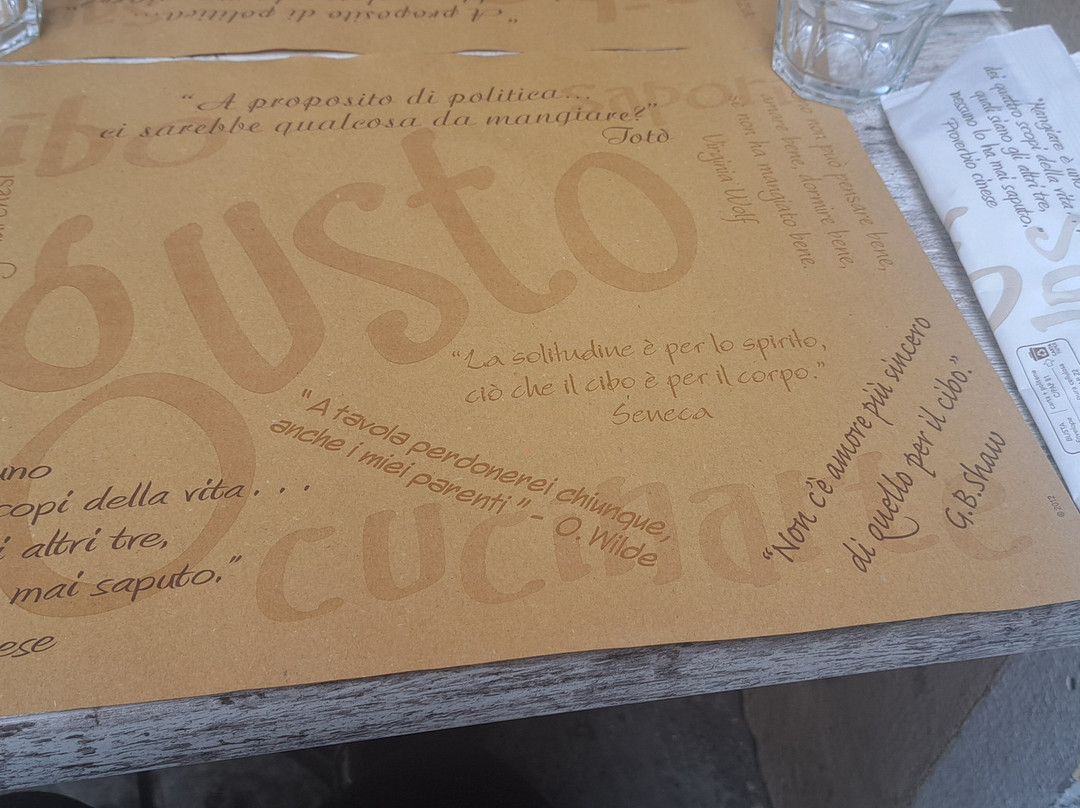 "A proposito di politica...
"A proposito di politica...
ci sarebbe qualcosa da mangiare?"
Totò
cibo
sapori
Gusto
non può pensare bene,
amare bene, dormire bene,
se non ha mangiato bene.
Virginia Wolf
"Mangiare è uno
dei quattro scopi della vita
quali siano gli altri tre,
nessuno lo ha mai saputo."
Proverbio cinese
"La solitudine è per lo spirito,
ciò che il cibo è per il corpo."
Seneca
"A tavola perdonerei chiunque,
anche i miei parenti" - O. Wilde
"Non c'è amore più sincero
di quello per il cibo."
G.B.Shaw
© 2012
uno
scopi della vita...
i altri tre,
mai saputo."
ese
cucinarte
BUSTA